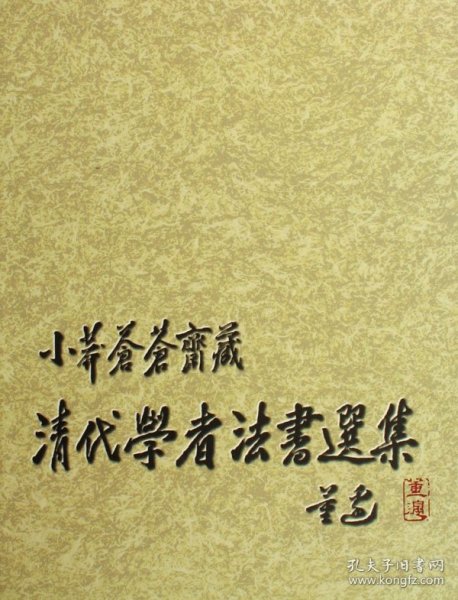 小莽蒼蒼齋藏
清代學者法書選集
董寿
孔夫子旧书网
www.kongfz.com